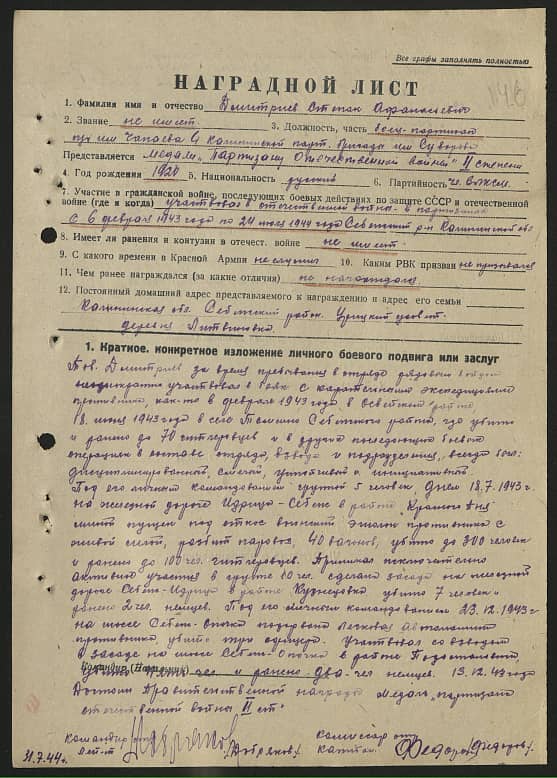 Все графы заполнять полностью
НАГРАДНОЙ ЛИСТ
1. Фамилия имя и отчество Дмитриев Степан Афанасьевич
2. Звание не имеет 3. Должность, часть
им Чапаева 4 калининской парт. бригады им Суворова
Представляется медали „Партизану Отечественной войны" II степени
4. Год рождения 1920 5. Национальность русский 6. Партийность чл. ВЛКСМ.
7. Участие в гражданской войне, последующих боевых действиях по защите СССР и отечественной
войне (где и когда) участвовал в отечественной войне в партизанах
с 6 февраля 1943 года по 24 июля 1944 года Себежский р-н Калининской обл
8. Имеет ли ранения и контузии в отечест. войне не имеет
9. С какого времени в Красной Армии не служил 10. Каким РВК призван не призывался
11. Чем ранее награждался (за какие отличия) не награждался
12. Постоянный домашний адрес представляемого к награждению и адрес его семьи
Калининская обл. Себежский район.
деревня Литвиновка.
1. Краткое, конкретное изложение личного боевого подвига или заслуг
Тов. Дмитриев за время пребывания в отряде рядовым бойцом
участвовал в боях с карательными экспедициями
противника, как-то в феврале 1943 года в Освейском районе
18. июня 1943 года в село Томсино Себежского района, где убито
и ранено до 70 гитлеровцев и в других последующих боевых
операциях в составе отряда, взвода и подразделения, всегда был:
дисциплинированной, смелой, и инициативный.
Под его личным командованием группой 5 человек днем 18.7.1943 г.
на железной дороге Идрица-Себеж в районе
пущен под откос воинский эшелон противника с
живой силой, разбит паровоз, 40 вагонов, убито до 300 человек
и ранено до 100 чел. гитлеровцев. Принимал исключительно
активное участие в группе чел. сделано засаде на железной
дороге Себеж-Идрица в районе Кузнецовка убито 7 человек и
ранено 2 чел. немцев. Под его личным командованием 23.12.1943 г
на шоссе Себеж-Опочка подорвал легковая автомашина
противника, убито три офицера. Участвовал со взводом
в засаде на шоссе Себеж-Опочка в районе
Командир (Начальник)
убито чел и ранено два чел немцев. 13.12.43 года
Достоин Правительственной награды медаль „партизану
отечественной войны II ст"
Командир
лет-нт
комиссар отр
капитан
Федоров /Федоров/
31.7.44 г.